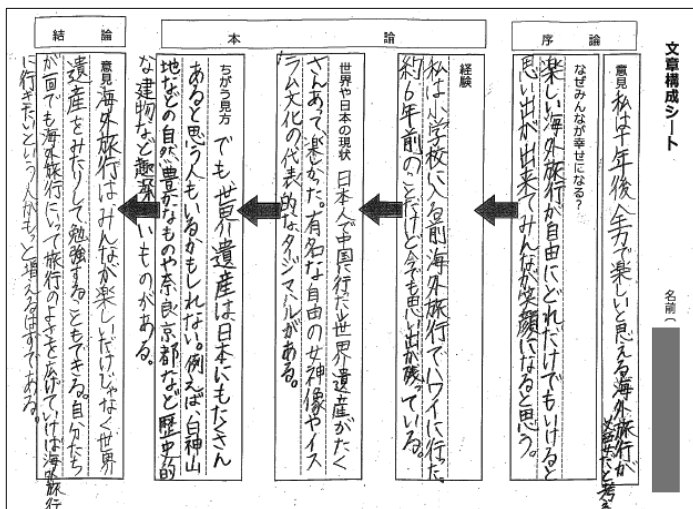 文章構成シート
名前(
序論
意見 私は十年後全力で楽しいと思える海外旅行が
と考え
なぜみんなが幸せになる?
楽しい海外旅行が自由にどれだけでもいけると
思い出が出来てみんなが笑顔になると思う。
本論
経験
私は小学校に入る前海外旅行でハワイに行った。
約6年前のことだけど今でも思い出が残っている。
世界や日本の現状 日本人で中国に行った世界遺産がたく
さんあって、楽かった。有名な自由の女神像やイス
ラム文化の代表的なタージマハルがある。
ちがう見方 でも世界遺産は日本にもたくさん
あると思う人もいるかもしれない。例えば、白神山
地などの自然豊かなものや奈良京都など歴史的
な建物など趣深いいものがある。
結論
意見 海外旅行はみんなが楽しいだけじゃなく世界
遺産をみたりして、勉強することもできる。自分たち
が一回でも海外旅行にいって旅行のよさを広げていけば海外旅行
に行きたいという人がもっと増えるはずである。